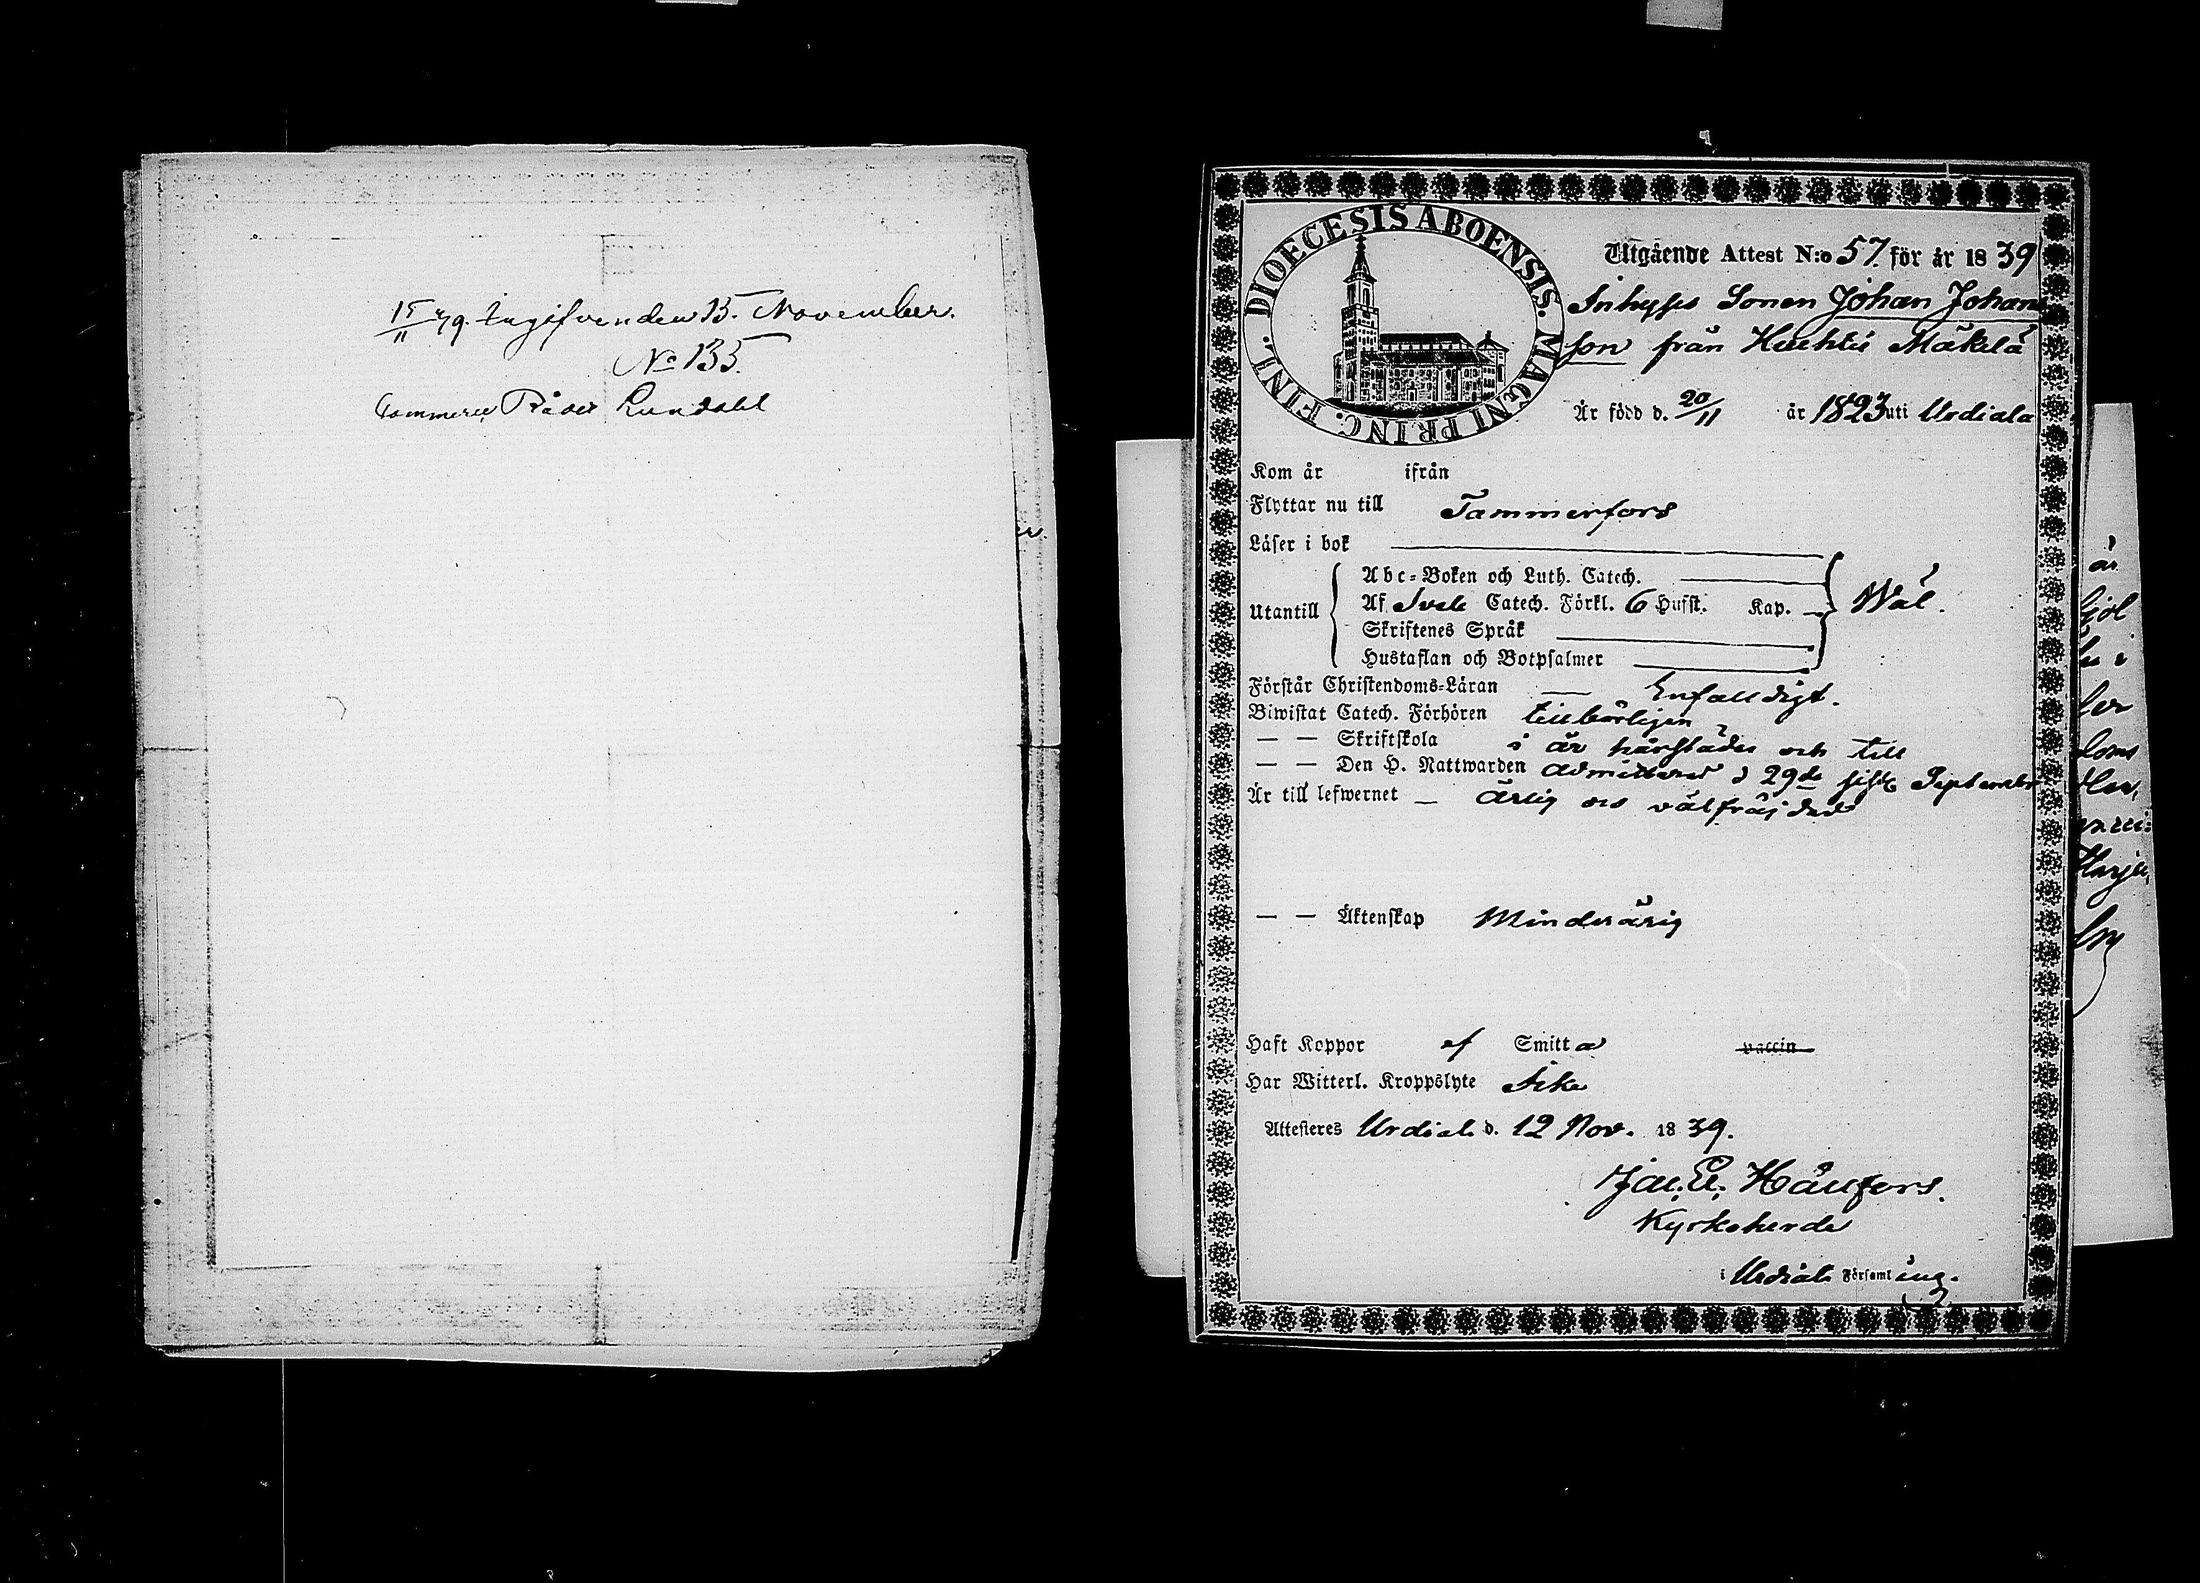 15/11 39. Ingifven den 15. November.
No 135.
Commerce Rådet Lundahl
DIOECESIS ABOENSIS. MAGNI PRINC. FINL.
Utgående Attest N:o 57. för år 1839
Inhyses Sonen Johan Johans
son från Huhtis Mäkelä
Är född d. 20/11 år 1823 uti Urdiala
Kom år ifrån
Flyttar nu till Tammerfors
Läser i bok
Utantill
Abc-Boken och Luth. Catech.
Af Sveb Catech. Förkl. 6 Hufst. Kap. Wäl.
Skriftenes Språk
Hustaflan och Botpsalmer
Förstår Christendoms-Läran — Enfalldigt.
Biwistat Catech. Förhören tillbörligen
— — Skriftskola i år härstädes och till
— — Den H. Nattwarden admitterad d 29de sistl. September
Är till lefwernet — ärlig och välfräjdad
— — Äktenskap Minderårig
Haft Koppor af Smitta vaccin
Har Witterl. Kroppslyte Icke
Attesteres Urdiala d. 12 Nov. 1839.
Kyrkoherde
i Urdiala Församling.